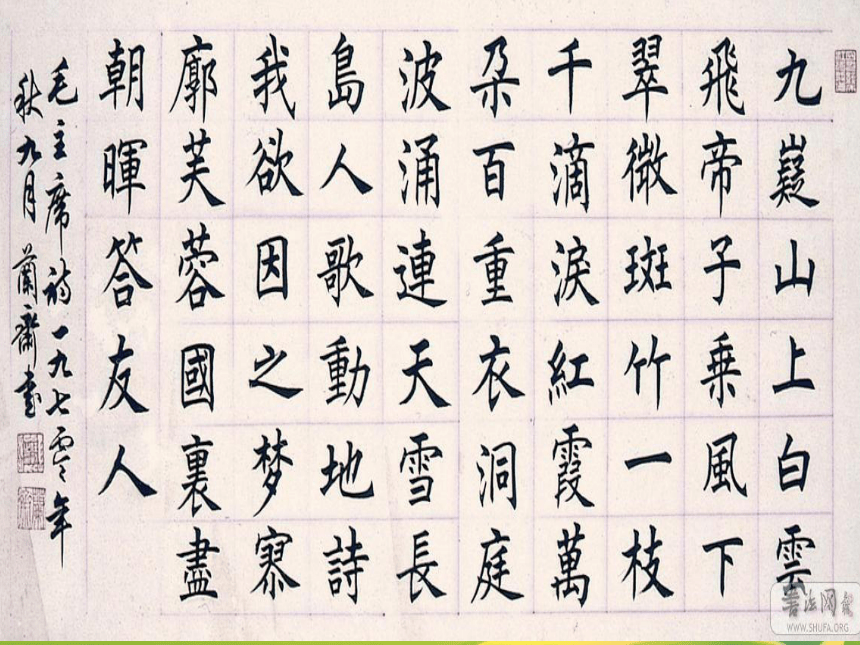 九嶷山上白雲
飛帝子乗風下
翠微斑竹一枝
千滴淚紅霞萬
朵百重衣洞庭
波涌連天雪長
島人歌動地詩
我欲因之梦寥
廓芙蓉國裏盡
朝暉答友人
毛主席詩一九七零年
秋九月蘭齋書
WWW.SHUFA.ORG